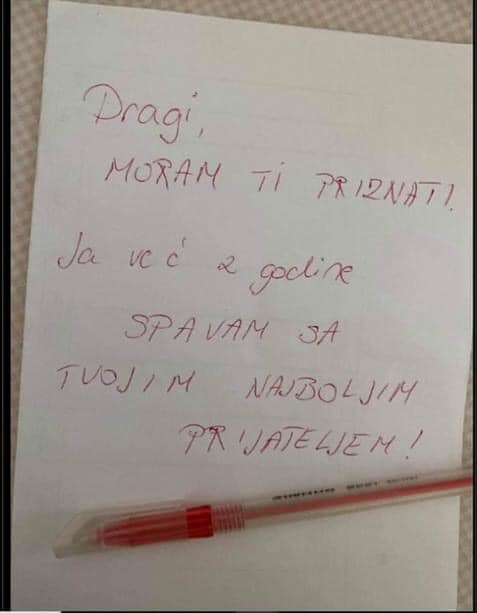 Dragi,
MORAM TI PRIZNATI!
Ja već 2 godine
SPAVAM SA
TVOJIM NAJBOLJIM
PRIJATELJEM!